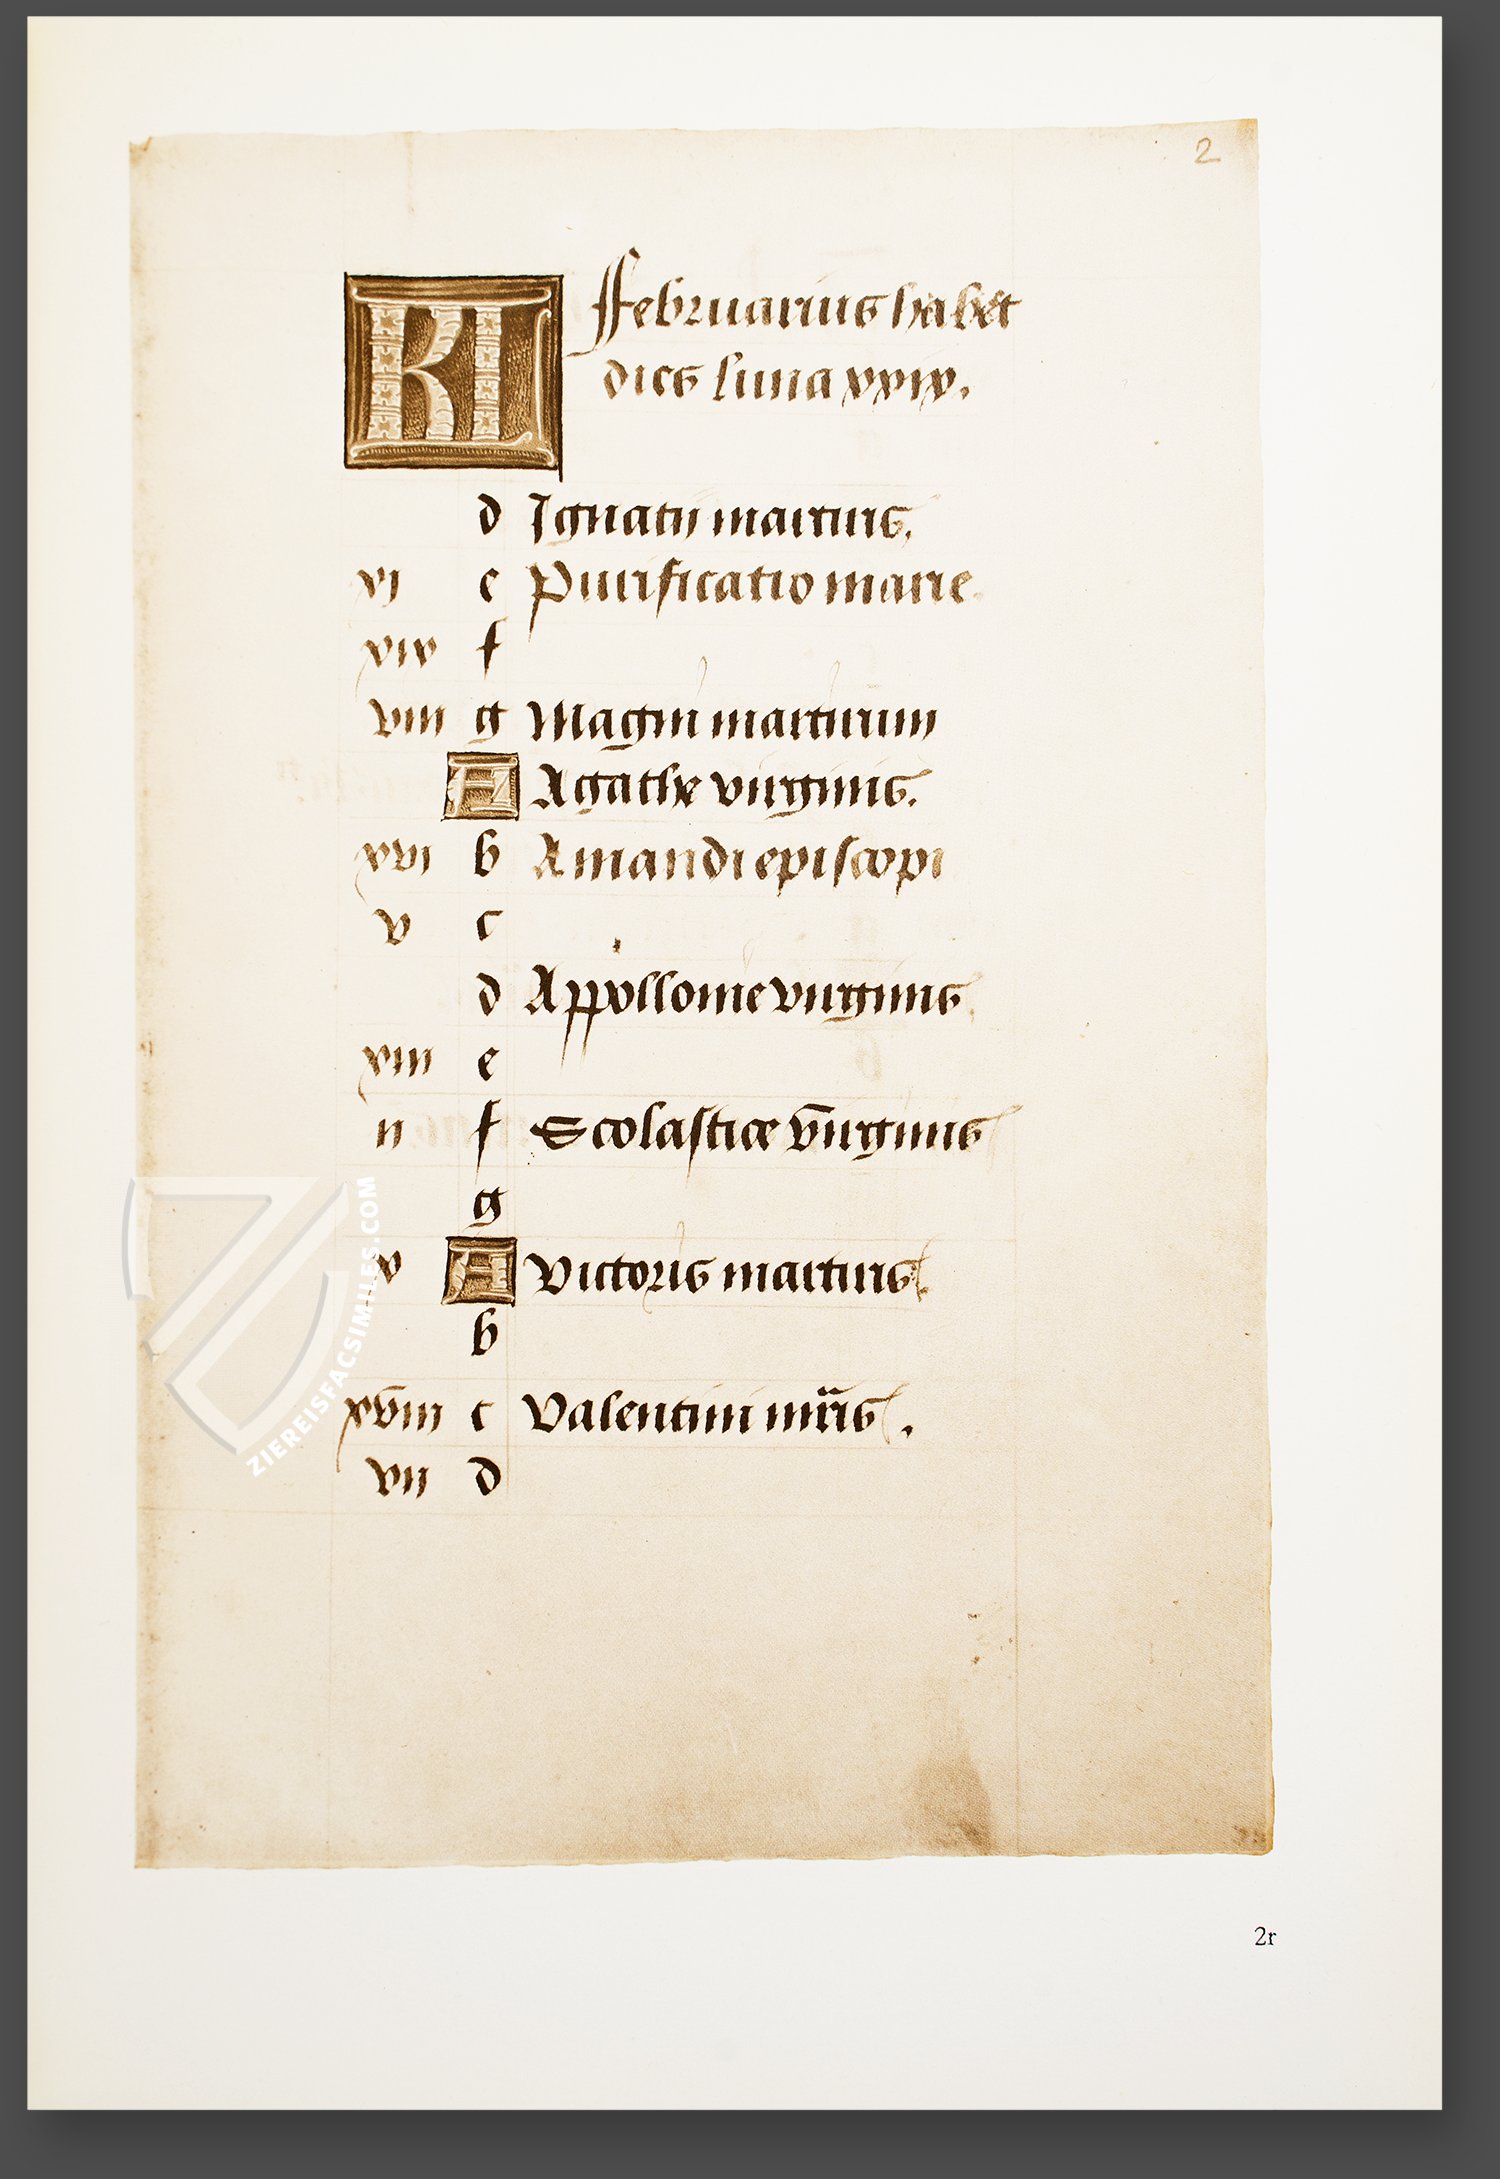 2
KL Februarius habet
dies luna xxix.
d Ignatij martiris.
vj e Purificatio marie.
xix f
viii g Magni martirum
A Agathe virginis.
xvi b Amandi episcopi
v c
d Appollonie virginis.
xiii e
ii f Scolastice virginis
g
v A Victoris martiris.
b
xviii c Valentini mr̃is.
vii d
ZIEREISFACSIMILES.COM
2r